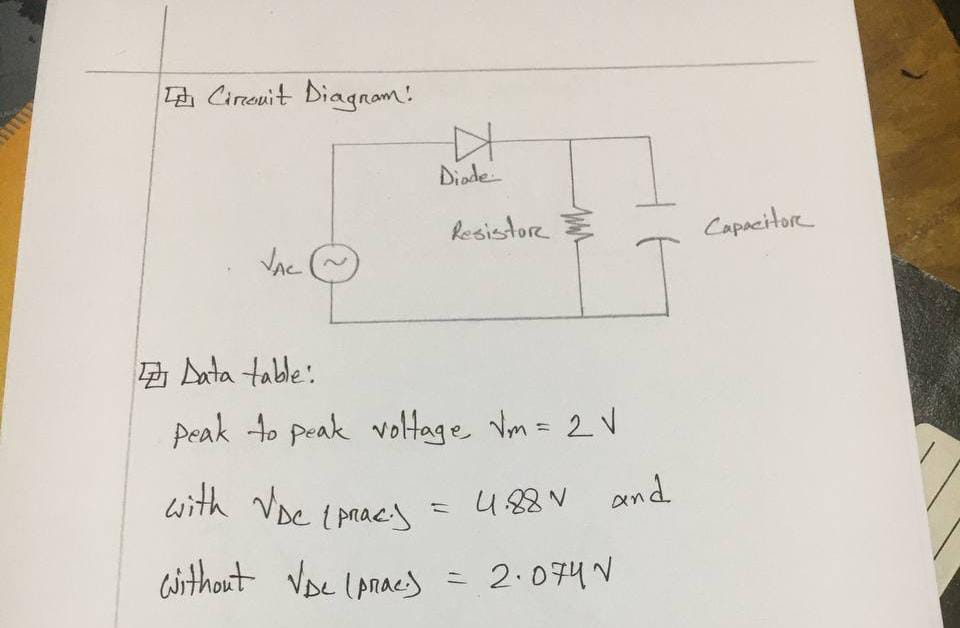 Circuit Diagram:
Diode
Resistor
Capacitor
VAC
Data table:
peak to peak voltage, Vm = 2 V
with VDC (prac.) = 4.88 V and
without VDC (prac.) = 2.074 V